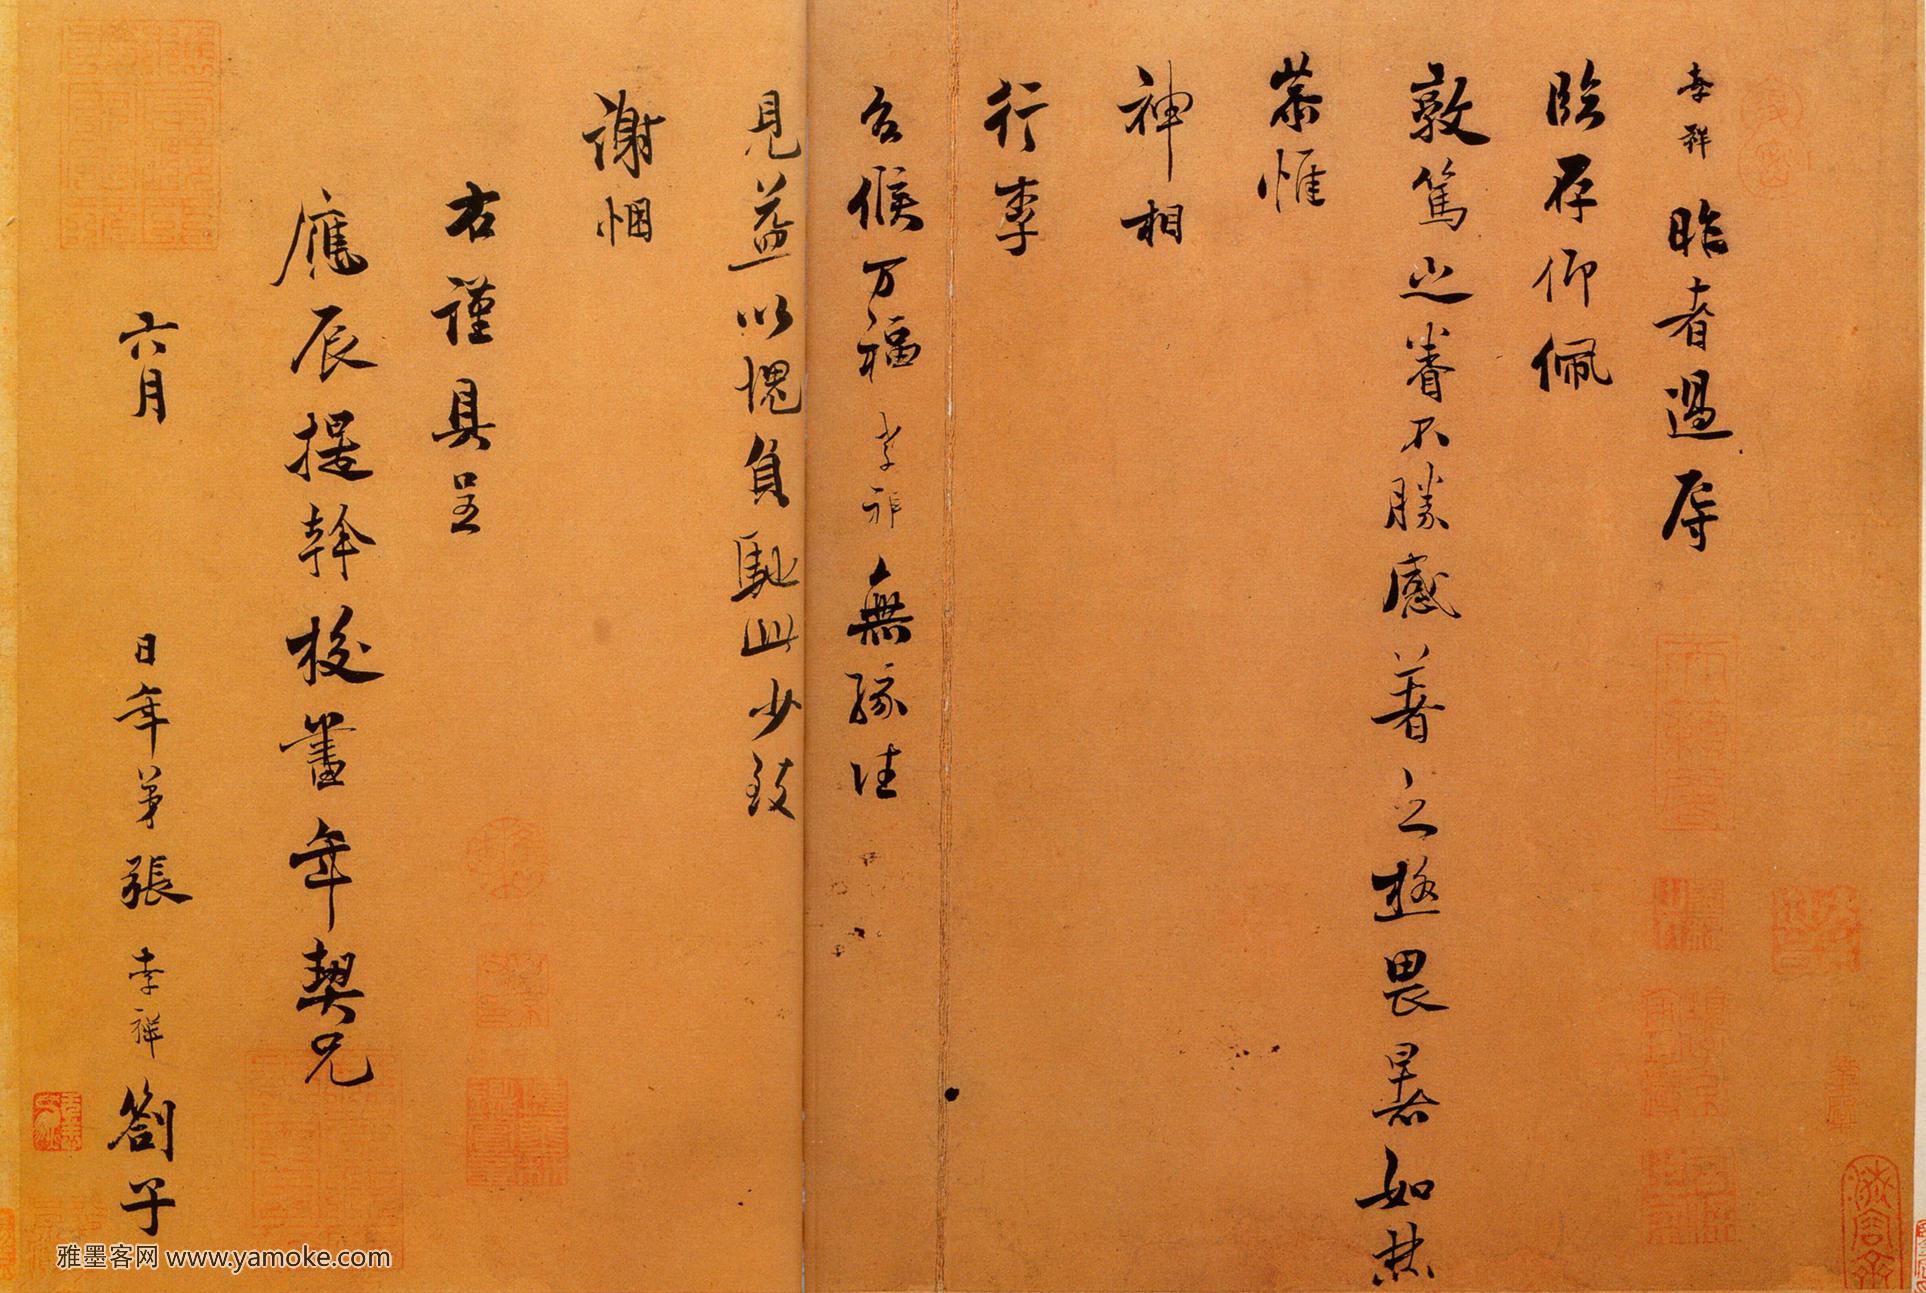 孝祥昨者過辱
臨存仰佩
敦篤之眷不勝感著之極畏暑如焚
恭惟
神相
行李
台候万福孝祥無緣往
見益以愧負馳此少致
謝悃
右謹具呈
應辰提幹校書年契兄
六月 日年弟張孝祥劄子
雅墨客网 www.yamoke.com